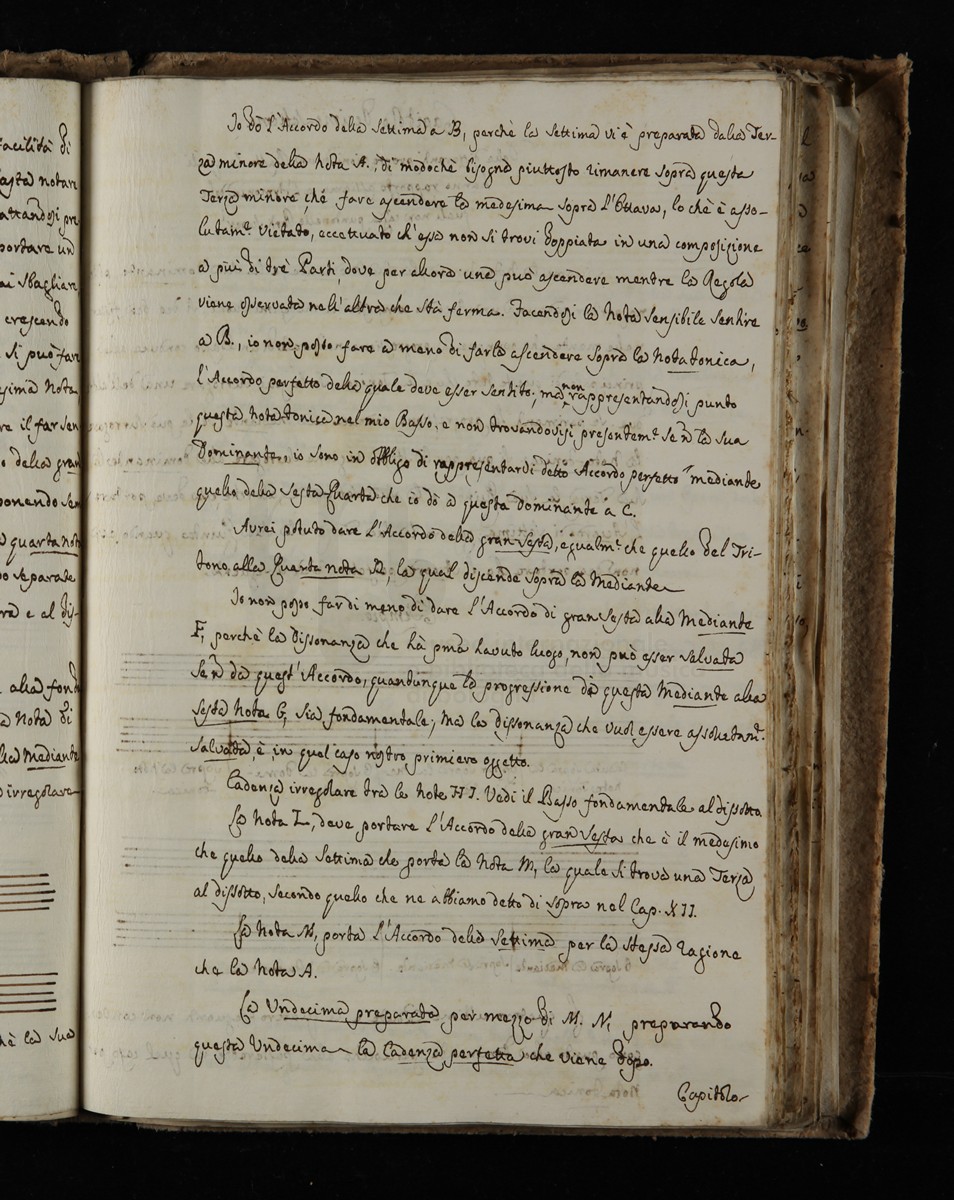 facilità di
basta notari
portare un
ai sbaglian
crescendo
si può far
sima nota
re il far sen
o della gran
ponendo se
a quarta not
o separate
ra e al dis-
alla fond
a nota di
la Mediante
irregolare
hè la sua
Io dò l'Accordo della Settima a B, perchè la settima vi è preparata dalla Ter-
za minore della nota A., di modochè bisogna piuttosto rimanere sopra questa
Terza minore, ché fare ascendere la medesima sopra l'Ottava, lo chè è asso-
lutam.e vietato, eccettuato ch'essa non si trovi doppiata in una composizione
a più di trè Parti, dove per allora una può ascendere mentre la Regola
viene osservata nell'altra che stà ferma. Facendosi la nota sensibile sentire
a B., io non posso fare a meno di farla ascendere sopra la nota tonica,
l'Accordo perfetto della quale deve esser sentito; ma non rappresentandosi punto
questa nota tonica nel mio Basso, e non trovandovisi presentem.e se ñ la sua
Dominante, io sono in obbligo di rappresentardi detto Accordo perfetto mediante
quello della Sesta Quarta che io dò a questa Dominante a C.
Avrei potuto dare l'Accordo della gran sesta, egualm.e che quello del Tri-
tono, alla Quarta nota D, la qual discende sopra la Mediante
Io non posso far di meno di dare l'Accordo di gran Sesta alla Mediante
F, perchè la dissonanza che hà pma havuto luogo, non può esser salvata
se ñ da quest'Accordo, quantunque la progressione da questa Mediante alla
sesta nota G, sia fondamentale; ma la dissonanza che vuol essere assolutam.e
salvata, è in quel caso nostro primiero oggetto.
Cadenza irregolare tra le note H I. Vedi il Basso fondamentale al dissotto
La nota L, deve portare l'Accordo della gran sesta che è il medesimo
che quello della Settima che porta la nota M, la quale si trova una Terza
al dissotto, secondo quello che ne abbiamo detto di sopra nel Cap. XII.
La nota M, porta l'Accordo della Settima per la stessa ragione
che la nota A.
La Undecima preparata per mezzo di M. N, preparando
questa Undecima la Cadenza perfetta che viene dopo.
Capitolo